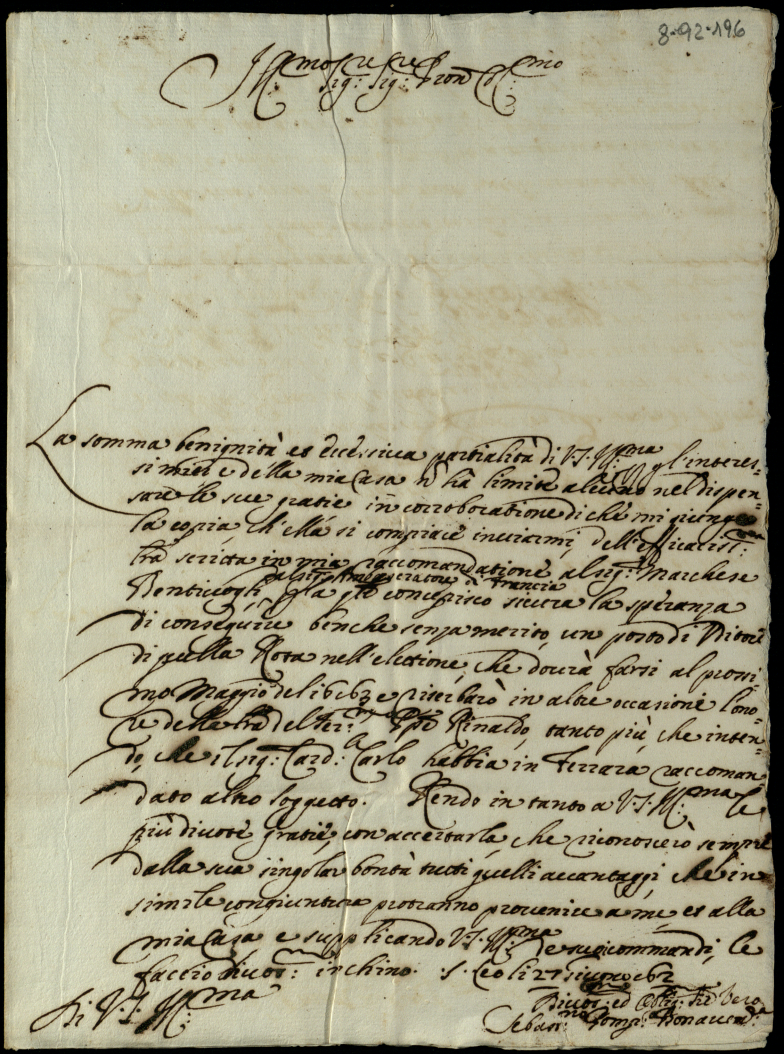 8-92-196
Ill.mo Sig.re Sig.re Pron Col.mo
La somma benignità et eccessiva partialità di V.S. Ill.ma p gl'interes-
si miei e della mia Casa n hà limite alcuno nel dispen-
sare le sue gratie in corroboratione di chè mi giunge
la copia, ch'ella si compiace inviarmi, dell'efficaciss.ma
lrã scritta in mia raccomandatione al sig.r Marchese
al sig. Ambasciatore di Francia
Bentivogli, p la q.le concepisco sicura la speranza
di conseguire benche senza merito, un posto di Uditore
di quella Rota nell'elettione, che dovrà farsi al prossi-
mo Maggio del 1663 e riserbarò in altre occasioni l'ono-
re della lrã del Ser.mo Ppe Rinaldo, tanto più, che inten-
do, che il sig.r Card.le Carlo habbia in Ferrara raccoman
dato altro soggetto. Rendo in tanto a V.S. Ill.ma le
più divote gratie, con accertarla, che riconoscerò sempre
dalla sua singolar bontà tutti quelli avantaggi, che in
simile congiuntura potranno provenire a me, et alla
mia Casa, e supplicando V.S. Ill.ma de suoi commandi, le
faccio divot.mo inchino. S. Leo li 27 giugno 662
Di V.S. Ill.ma
Divot.mo ed Oblig.mo Ser Vero
Sebast.no Pomp. Bonavent.a